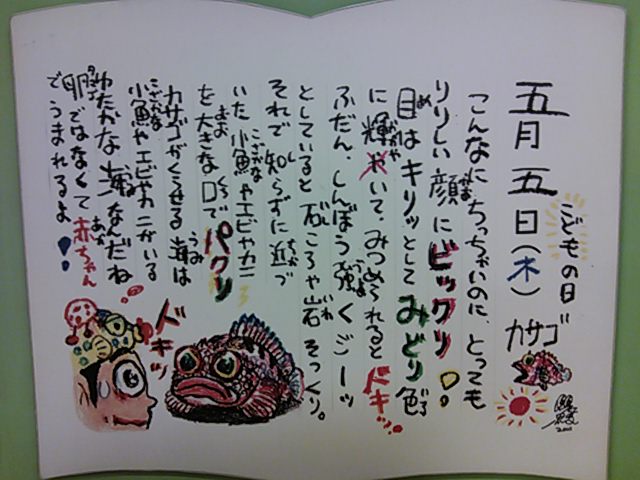 五月五日(木)カサゴ
こどもの日
こんなにちっちゃいのに、とっても
りりしい顔にビックリ!
目はキリッとしてみどり色
に輝いて、みつめられるとドキッ。
ふだん、しんぼう強くじーッ
としていると石ころや岩そっくり。
それで知らずに近づ
いた小魚やエビやカニ
を大きな口でパクリ
カサゴがくらせる海は
小魚やエビやカニがいる
ゆたかな海なんだね
卵ではなくて赤ちゃん
でうまれるよ!
ドキッ